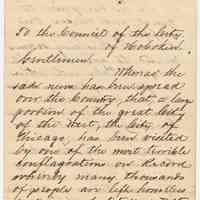 To the Council of the City
of Hoboken
Gentlemen.
Whereas the
sad news has been spread
over the Country, that a large
portion of the great City
of the West, the City of
Chicago, has been visited
by one of the most terrible
conflagrations on record
whereby many thousands
of people are left homeless